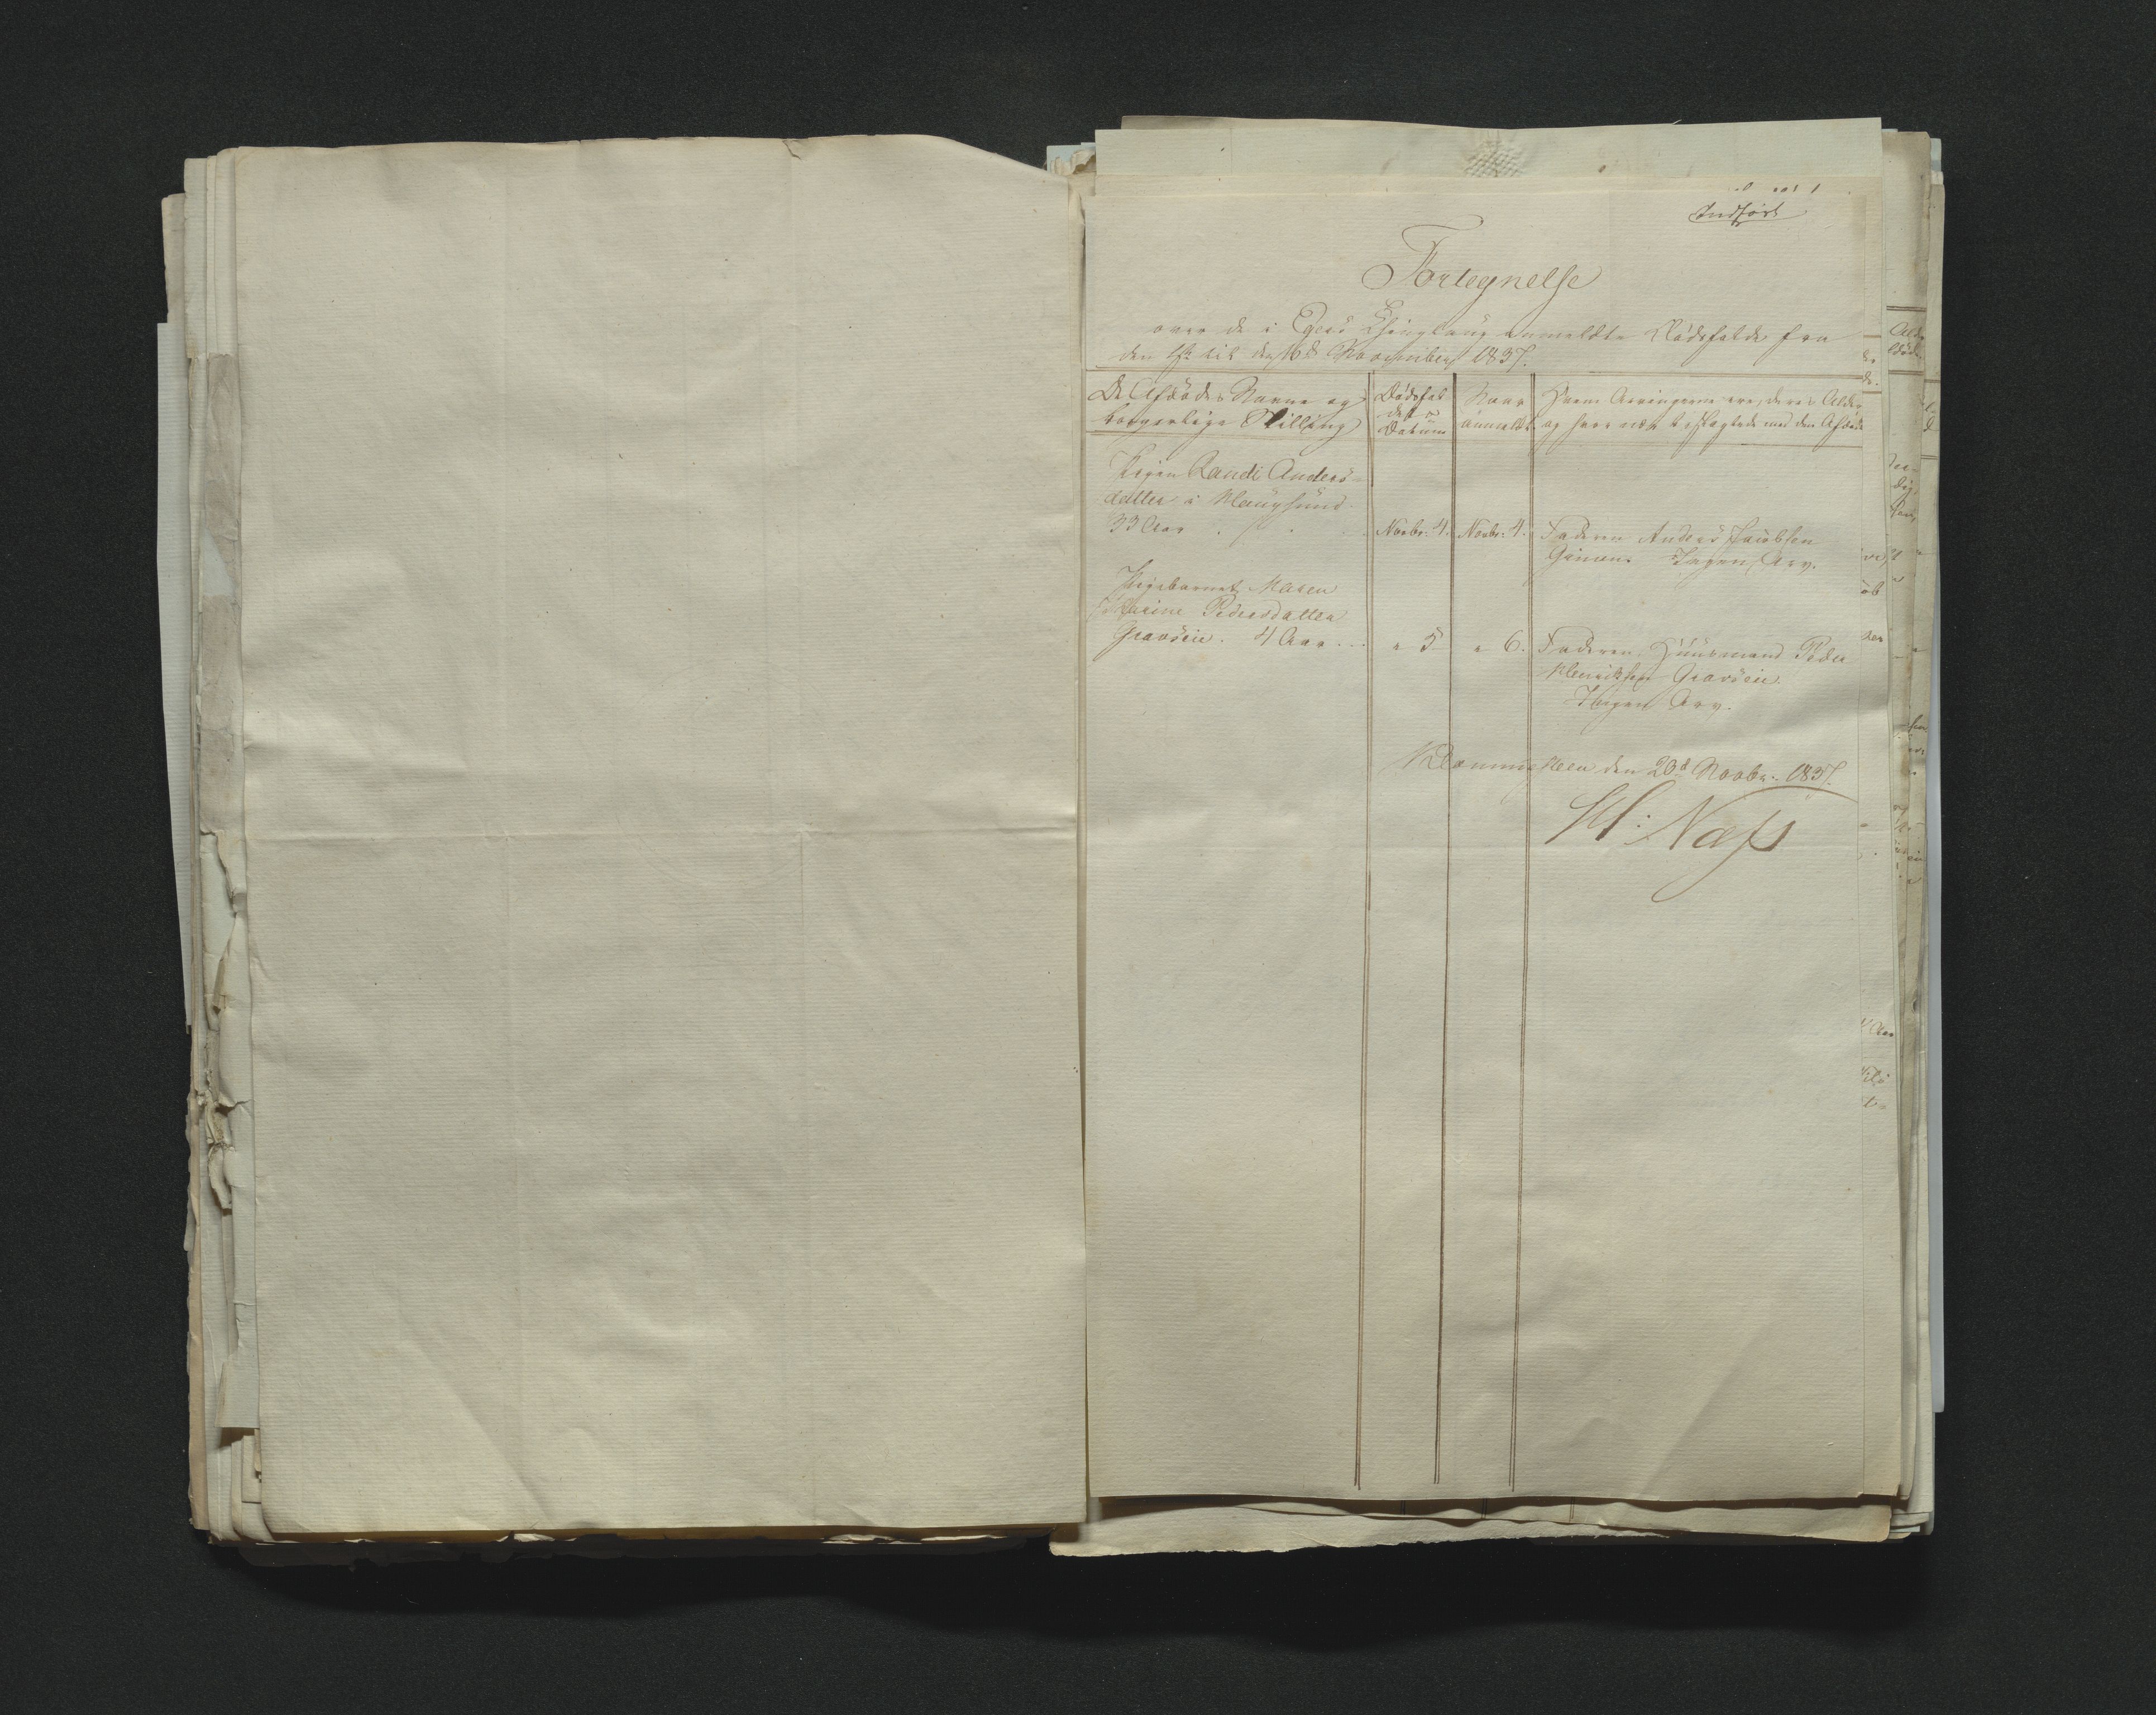 Indført
Fortegnelse
over de i Egers Thinglaug anmeldte Dødsfalde fra
den 1ste til den 16de November 1837.
De Afdødes Navne og
borgerlige Stilling
Dødsfal
dets
Datum
Naar
anmeldt
Hvem Arvingerne ere, deres Alder
og hvor nær beslægtede med den Afdøde
Pigen Randi Anders-
datter i Haugsund
33 Aar . . .
Novbr. 4.
Novbr. 4.
Faderen Anders Jacobsen
Ingen Arv.
Pigebarnet Maren
Karine Pedersdatter
4 Aar . . .
" 5
" 6.
Faderen Huusmand Peder
Henriksen
Ingen Arv.
den 20de Novbr. 1837.
H: Næss